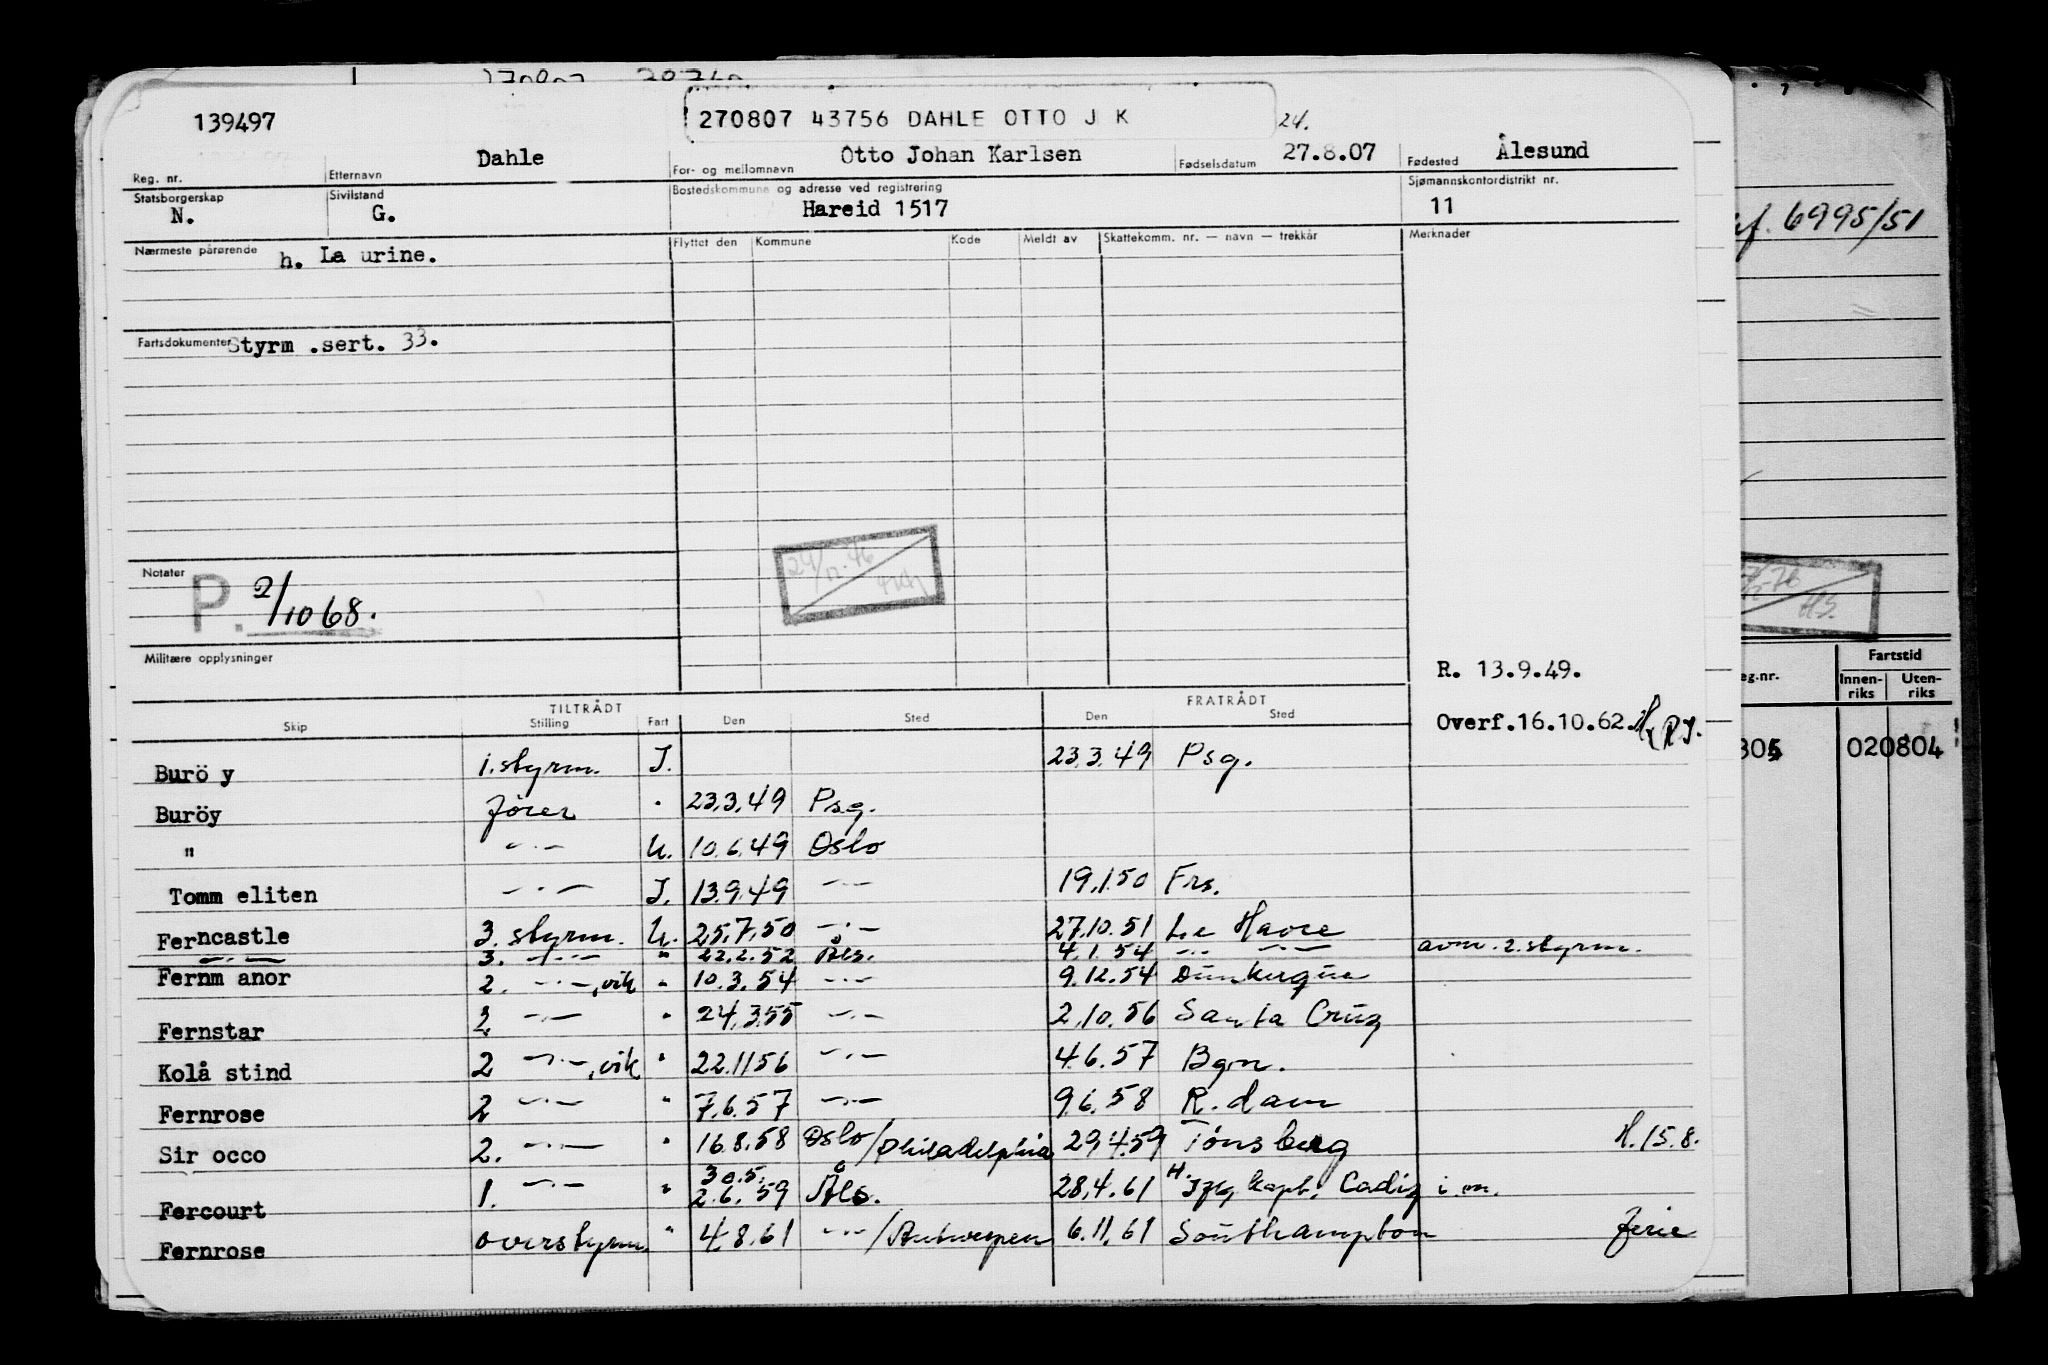 139497
270807 43756 DAHLE OTTO J K
24.
Dahle
Otto Johan Karlsen
27.8.07
Ålesund
Reg. nr.
Etternavn
For- og mellomnavn
Fødselsdatum
Fødested
Statsborgerskap
Sivilstand
Bostedskommune og adresse ved registrering
Sjømannskontordistrikt nr.
N.
G.
Hareid 1517
11
6995/51
Nærmeste pårørende
Flyttet den
Kommune
Kode
Meldt av
Skattekomm. nr. — navn — trekkår
Merknader
h. La urine.
Fartsdokumenter Styrm .sert. 33.
Notater
P. 2/10 68.
Militære opplysninger
R. 13.9.49.
eg.nr.
Fartstid
Innen-riks
Uten-riks
TILTRÅDT
FRATRÅDT
Skip
Stilling
Fart
Den
Sted
Den
Sted
Overf.16.10.62.
020804
Burö y 1. styrm. I. 23.3.49 Psg.
Buröy fører " 23.3.49 Psg.
" —"— U. 10.6.49 Oslo
Tomm eliten —"— I. 13.9.49 —"— 19.1.50 Frs.
Ferncastle 3. styrm. U. 25.7.50 —"— 27.10.51 Le Havre
—"— 3. —"— " 22.2.52 Åls. 4.1.54 —"— —"— avm. 2. styrm.
Fernm anor 2. —"—, vik " 10.3.54 —"— 9.12.54 Dunkerque
Fernstar 2 —"— " 24.3.55 —"— 2.10.56 Santa Cruz
Kolå stind 2 —"—, vik " 22.11 56 —"— 4.6.57 Bgn.
Fernrose 2 —"— " 7.6.57 —"— 9.6.58 R. dam
Sir occo 2. —"— " 16.8.58 Oslo/Philadelphia 29.4.59 Tönsberg H. 15.8.
30.5.
Fercourt 1. —"— " 2.6.59 Åls. 28.4.61 Cadiz i.m.
Fernrose overstyrm. " 4.8.61 —"—/Antwerpen 6.11.61 Southampton ferie